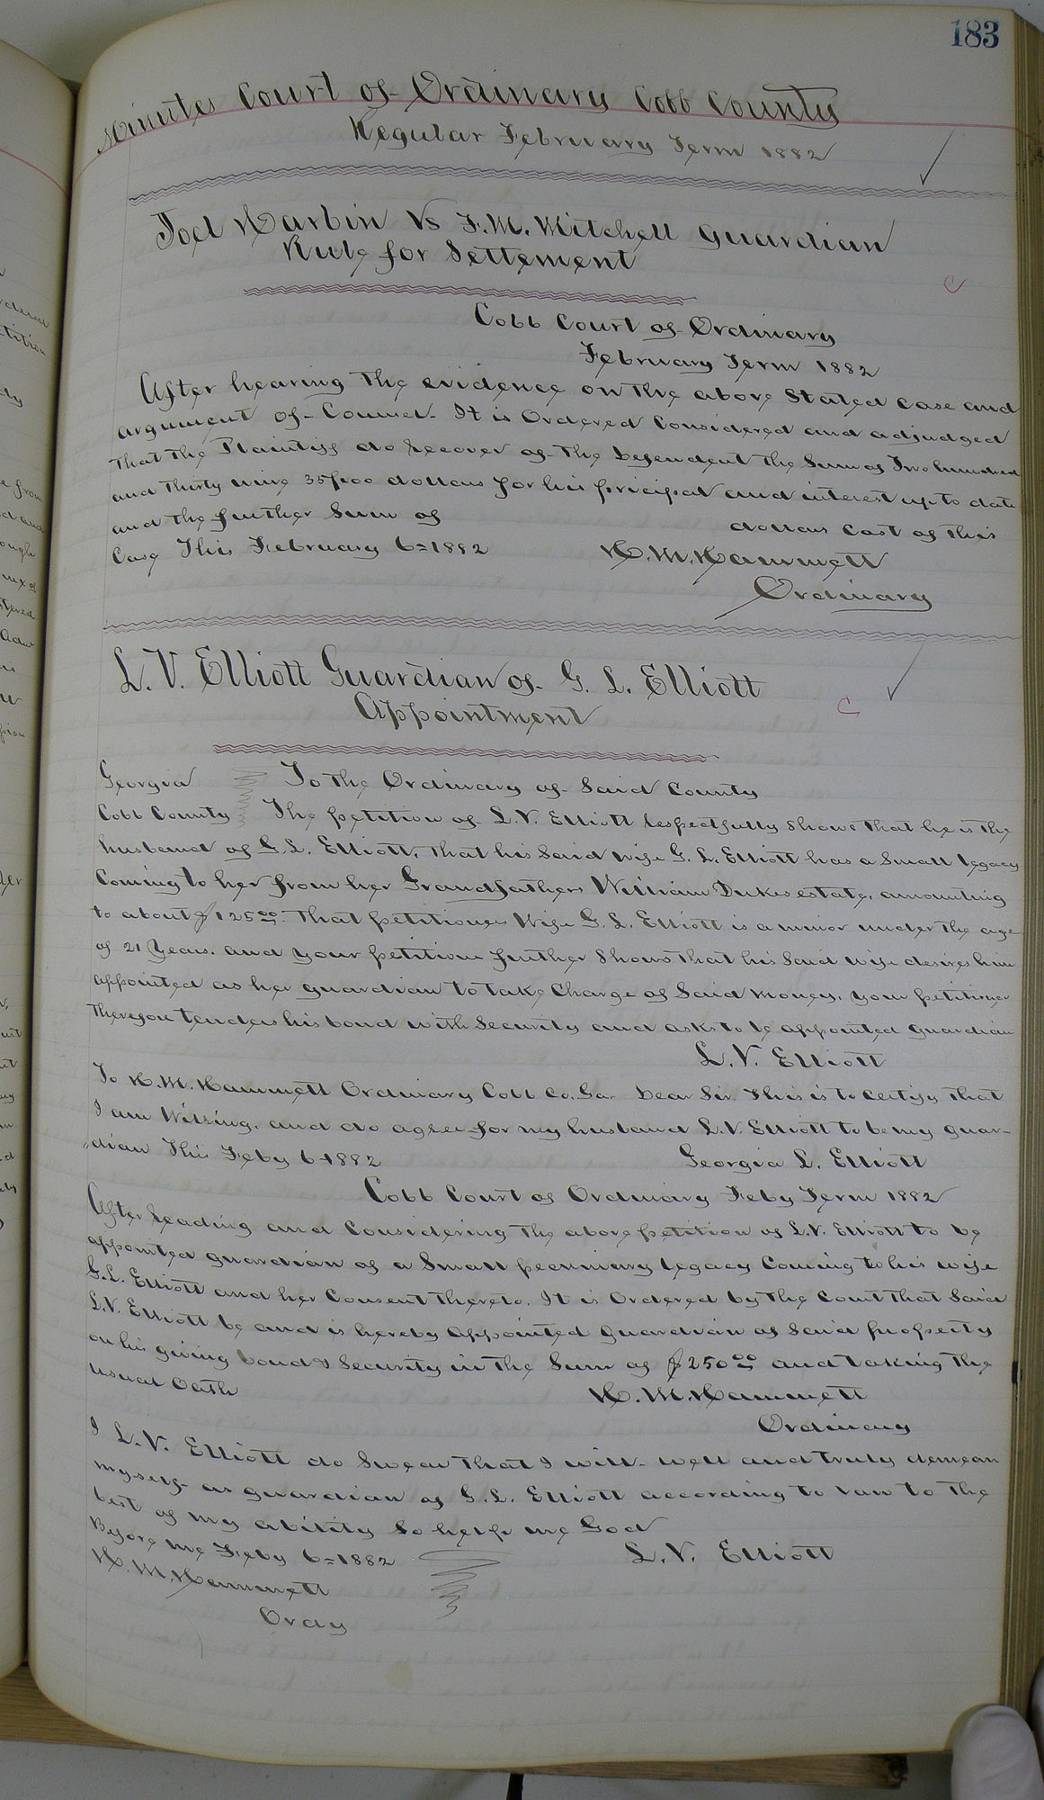 183
Minutes Court of Ordinary Cobb County
Regular February Term 1882
Joel Harbin Vs F. M. Mitchell Guardian
Rule for Settement
Cobb Court of Ordinary
February Term 1882
After hearing the evidence on the above Stated case and
argument of Counsel. It is Ordered Considered and adjudged
That the Plaintiff do Recover of the Defendent the Sum of Two hundred
and Thirty nine 35/100 dollars for his pricipal and interest up to date
and the further Sum of dollars Cost of this
Case This February 6=1882 H. M. Hammett
Ordinary
L. V. Elliott Guardian of G. L. Elliott
Appointment
Georgia To the Ordinary of Said County
Cobb County The petition of L.V. Elliott Respectfully Shows that he is the
husband of G. L. Elliott, That his Said wife G. L. Elliott has a Small legacy
Coming to her from her Grandfathers William Dukes estate, amounting
to about $125.00. That petitioner Wife G. L. Elliott is a minor under the age
of 21 Years. and your petitioner further Shows that his Said wife desires him
appointed as her guardian to take Charge of Said Money, your petitioner
Therefore tenders his bond with Security and asks to be appointed guardian
L. V. Elliott
To H. M. Hammett Ordinary Cobb Co. Ga. Dear Sir. This is to Certify that
I am Willing. and do agree for my husband L. V. Elliott to be my guar-
dian This Feby 6=1882 Georgia L. Elliott
Cobb Court of Ordinary Feby Term 1882
After Reading and Considering the above petition of L.V. Elliott to be
appointed guardian of a Small pecuniary legacy Coming to his wife
G.L. Elliott and her Consent thereto. It is Ordered by the Court that Said
L.V. Elliott be and is hereby Appointed Guardian of Said property
on his giving bond & Security in the Sum of $250.00 and taking the
usual Oath H. M. Hammett
Ordinary
I L. V. Elliott do Swear that I will well and truly demean
myself as guardian of G. L. Elliott according to law to the
best of my ability So help me God
Before me Feby 6=1882 L. V. Elliott
H. M. Hammett
Orday